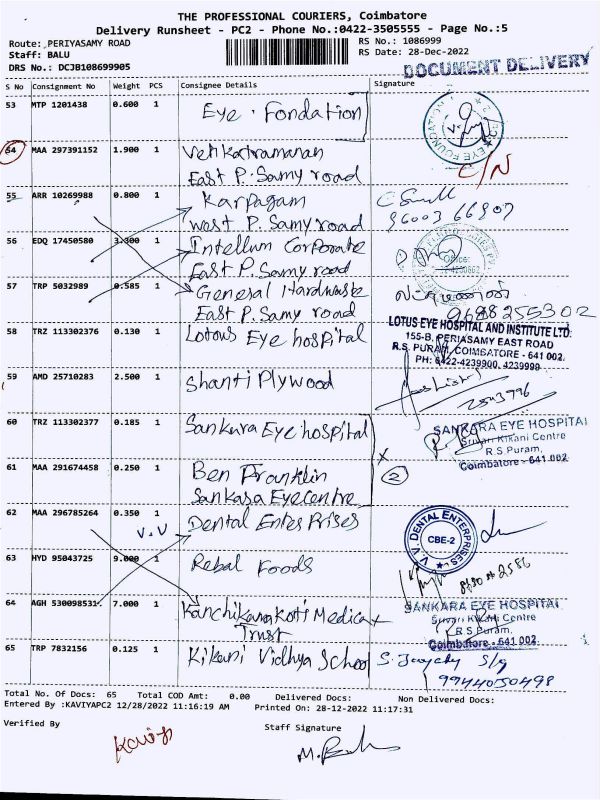 THE PROFESSIONAL COURIERS, Coimbatore
Delivery Runsheet - PC2 - Phone No.:0422-3505555 - Page No.:5
Route: PERIYASAMY ROAD RS No.: 1086999
Staff: BALU RS Date: 28-Dec-2022
DRS No.: DCJB108699905 DOCUMENT DELIVERY
S No Consignment No Weight PCS Consignee Details Signature
53 MTP 1201438 0.600 1 Eye. Fondation
EYE FOUNDATION
54 MAA 297391152 1.900 1 Venkatramanan C/N
East P. Samy road
55 ARR 10269988 0.800 1 Karpagam
West P. Samy road 96003 66907
56 EDQ 17450580 3.300 1 Intellum Corporate
East P. Samy road
57 TRP 5032989 0.585 1 General Hardware
East P. Samy road 9688255302
58 TRZ 113302376 0.130 1 Lotous Eye hospital
LOTUS EYE HOSPITAL AND INSTITUTE LTD.
155-B, PERIASAMY EAST ROAD
R.S. PURAM, COIMBATORE - 641 002.
PH: 0422-4239900, 4239999
59 AMD 25710283 2.500 1 Shanti Plywood
2543996
60 TRZ 113302377 0.185 1 Sankara Eye hospital
SANKARA EYE HOSPITAL
Srivari Kikani Centre
R.S.Puram,
Coimbatore - 641 002.
61 MAA 291674458 0.250 1 Ben Franklin x 2
Sankasa Eye centre
62 MAA 296785264 0.350 1 V.V Dental Entes Prises
V. V. DENTAL ENTERPRISES
CBE-2
63 HYD 95043725 9.000 1 Rebal Foods
64 AGH 530098531 7.000 1 Kanchikamakoti Medical
Trust
SANKARA EYE HOSPITAL
Srivari Kikani Centre
R.S.Puram,
Coimbatore - 641 002.
65 TRP 7832156 0.125 1 Kikani Vidhya School
9944050498
Total No. Of Docs: 65 Total COD Amt: 0.00 Delivered Docs: Non Delivered Docs:
Entered By :KAVIYAPC2 12/28/2022 11:16:19 AM Printed On: 28-12-2022 11:17:31
Verified By Staff Signature
Kaviya